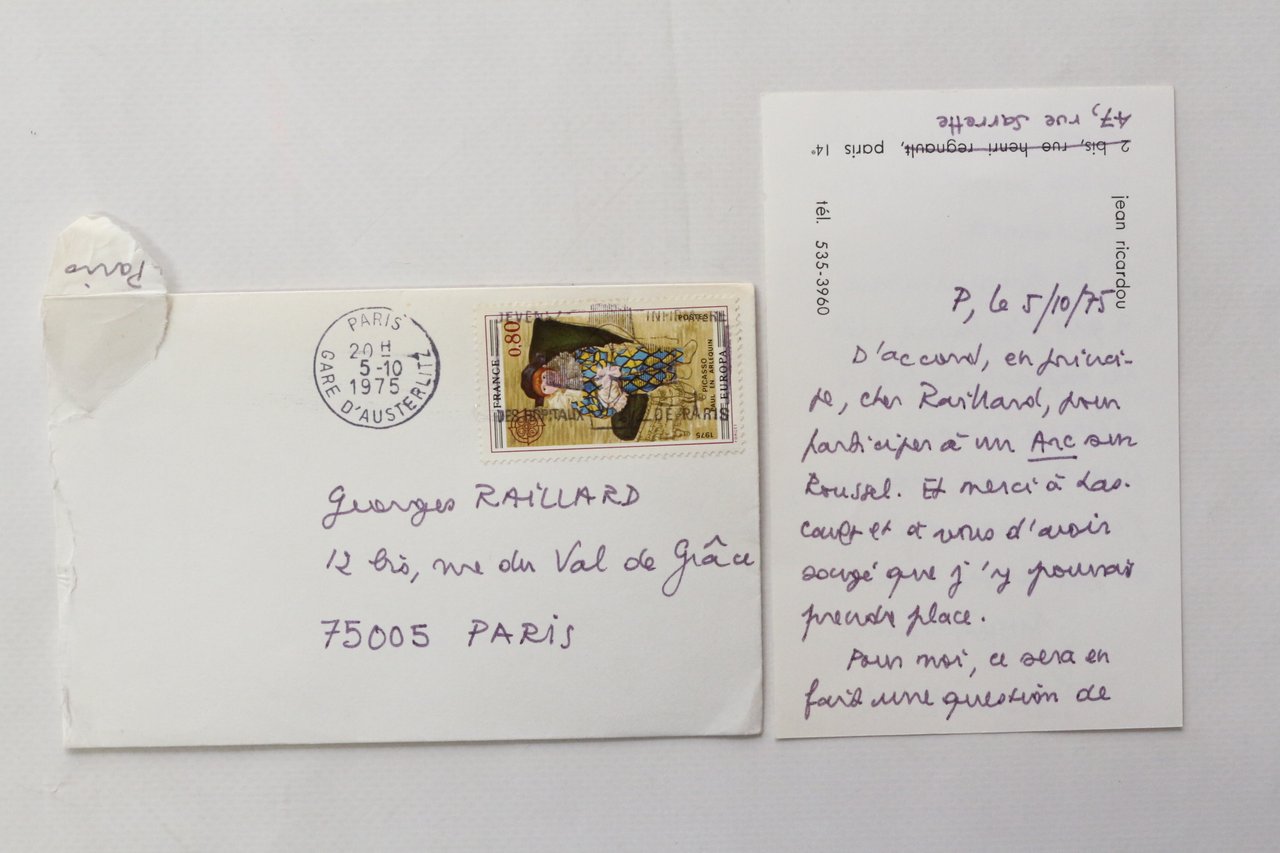 Paris
PARIS
20 H
5-10
1975
GARE D'AUSTERLITZ
FRANCE
0,80
PICASSO
PAUL EN ARLEQUIN
EUROPA
1975
DES HOPITAUX DE PARIS
Georges RAILLARD
12 bis, rue du Val de Grâce
75005 PARIS
47, rue Sarrette
2 bis, rue henri regnault, paris 14e
jean ricardou
tél. 535-3960
P, le 5/10/75
D'accord, en princi-
pe, cher Raillard, pour
participer à un Arc sur
Roussel. Et merci à Las-
cault et à vous d'avoir
songé que j'y pouvais
prendre place.
Pour moi, ce sera en
fait une question de